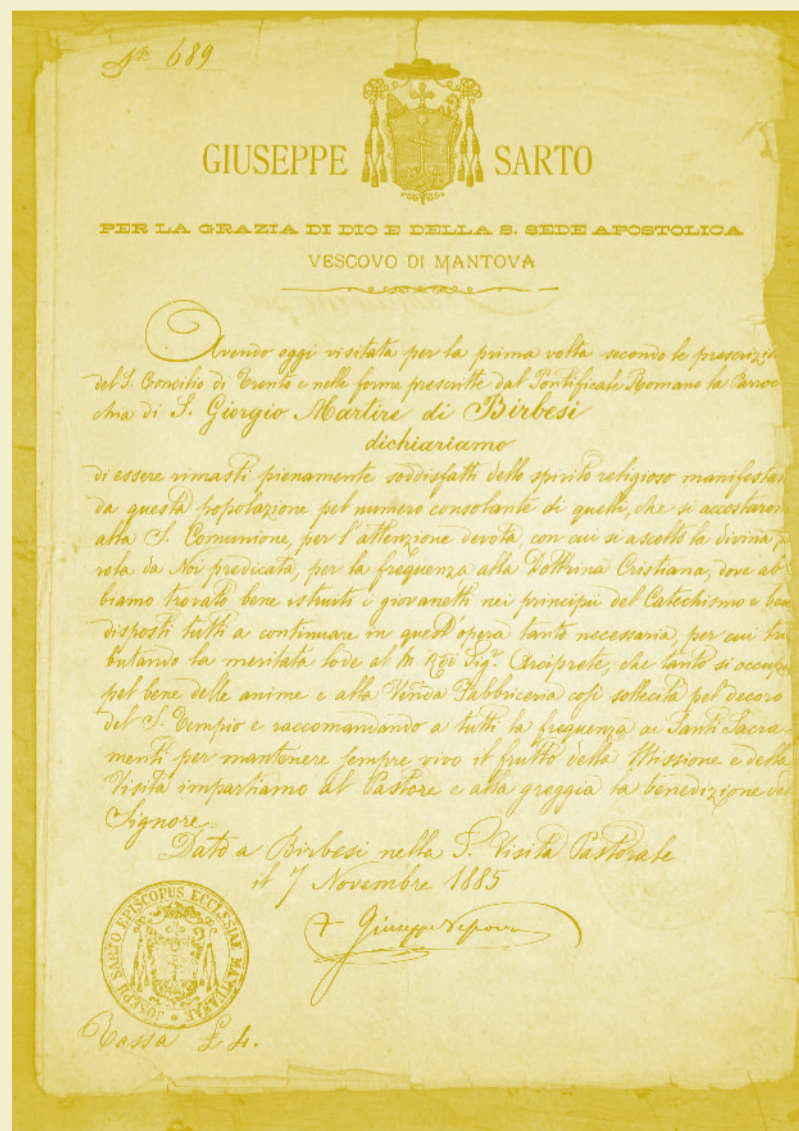 No 689
GIUSEPPE SARTO
PER LA GRAZIA DI DIO E DELLA S. SEDE APOSTOLICA
VESCOVO DI MANTOVA
Avendo oggi visitata per la prima volta secondo le prescrizi
del S. Concilio di Trento e nelle forme prescritte dal Pontificale Romano la Parroc
chia di S. Giorgio Martire di Birbesi
dichiariamo
di essere rimasti pienamente soddisfatti dello spirito religioso manifestat
da questa popolazione pel numero consolante di quelli, che si accostaron
alla S. Comunione, per l'attenzione devota, con cui si ascoltò la divina p
rola da Noi predicata, per la frequenza alla Dottrina Cristiana, dove ab
biamo trovato bene istruiti i giovanetti nei principii del Catechismo e ben
disposti tutti a continuare in quest'opera tanto necessaria, per cui tri
butando la meritata lode al M. Rdo Sigr. Arciprete, che tanto si occupa
pel bene delle anime e alla Vénda Fabbriceria così sollecita pel decoro
del S. Tempio e raccomandando a tutti la frequenza ai Santi Sacra-
menti per mantenere sempre vivo il frutto della Missione e della
Visita impartiamo al Pastore e alla greggia la benedizione del
Signore.
Dato a Birbesi nella S. Visita Pastorale
il 7 Novembre 1885
+ Giuseppe Vescovo
JOSEPH SARTO EPISCOPUS ECCLESIAE MANTUANAE
Tassa £ 4.